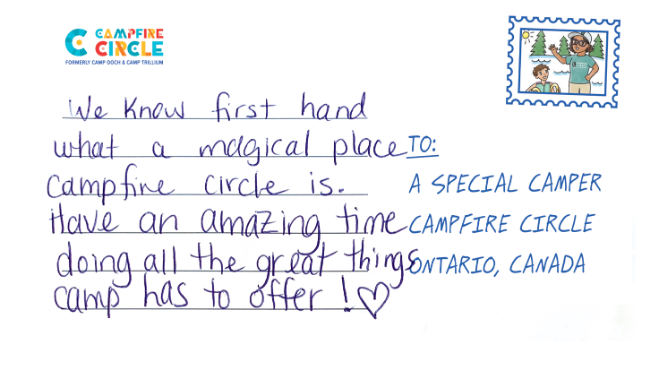 CAMPFIRE
CIRCLE
FORMERLY CAMP OOCH & CAMP TRILLIUM
We know first hand
what a magical place
campfire circle is.
Have an amazing time
doing all the great things
camp has to offer! ♡
TO:
A SPECIAL CAMPER
CAMPFIRE CIRCLE
ONTARIO, CANADA